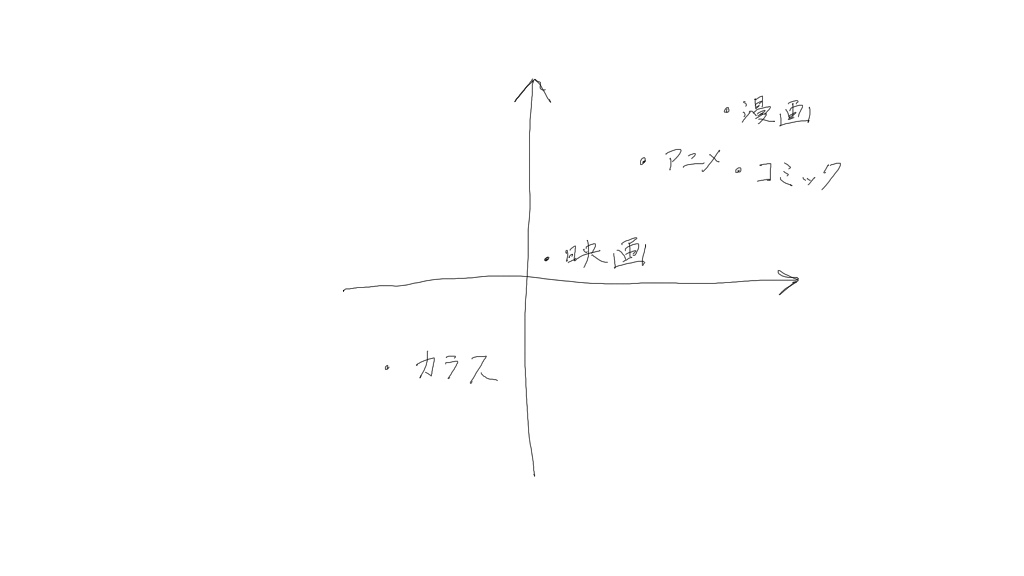 漫画
アニメ
コミック
映画
カラス